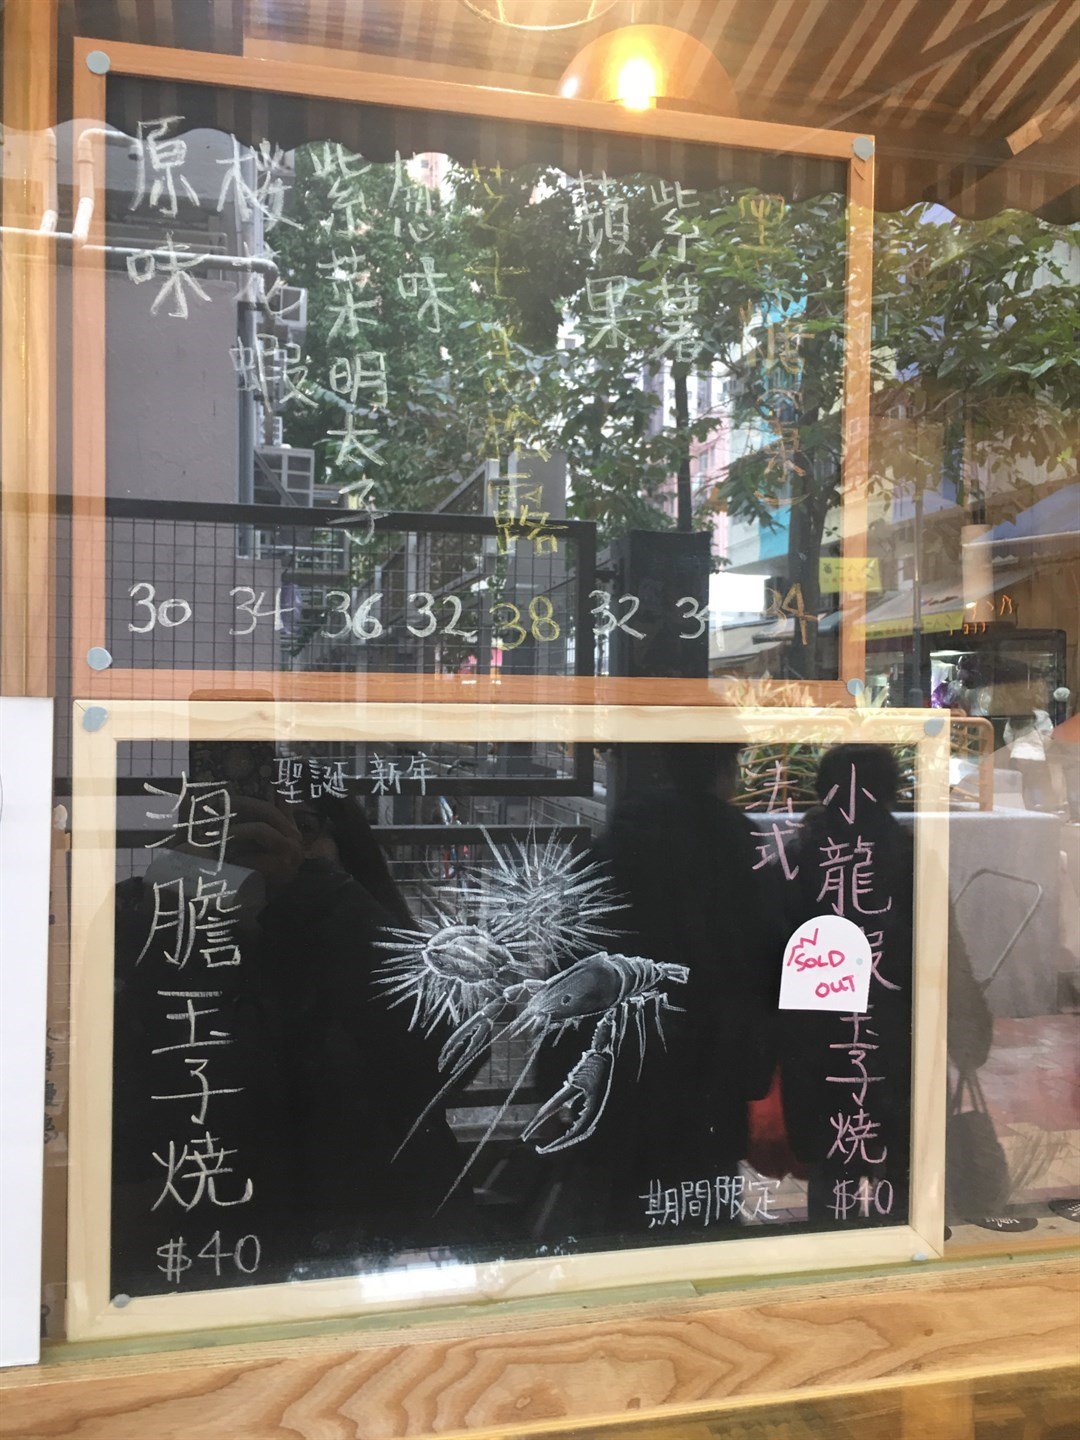 原味
桜花蝦
紫菜明太子
葱味
芝士
蘋果
紫薯
30 34 36 32 38 32 34 34
聖誕·新年
海膽玉子燒
$40
法式
小龍蝦玉子燒
$40
SOLD
OUT
期間限定